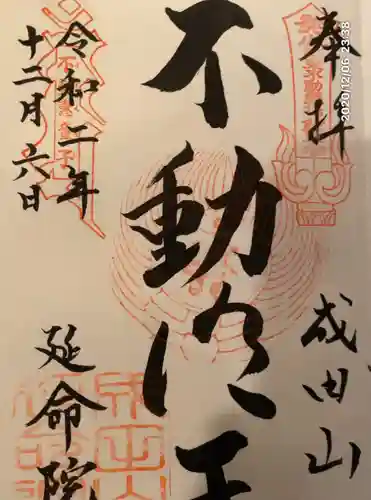 奉拝
2020/12/06 23:38
成田山
不動明王
令和二年
十二月六日
延命院